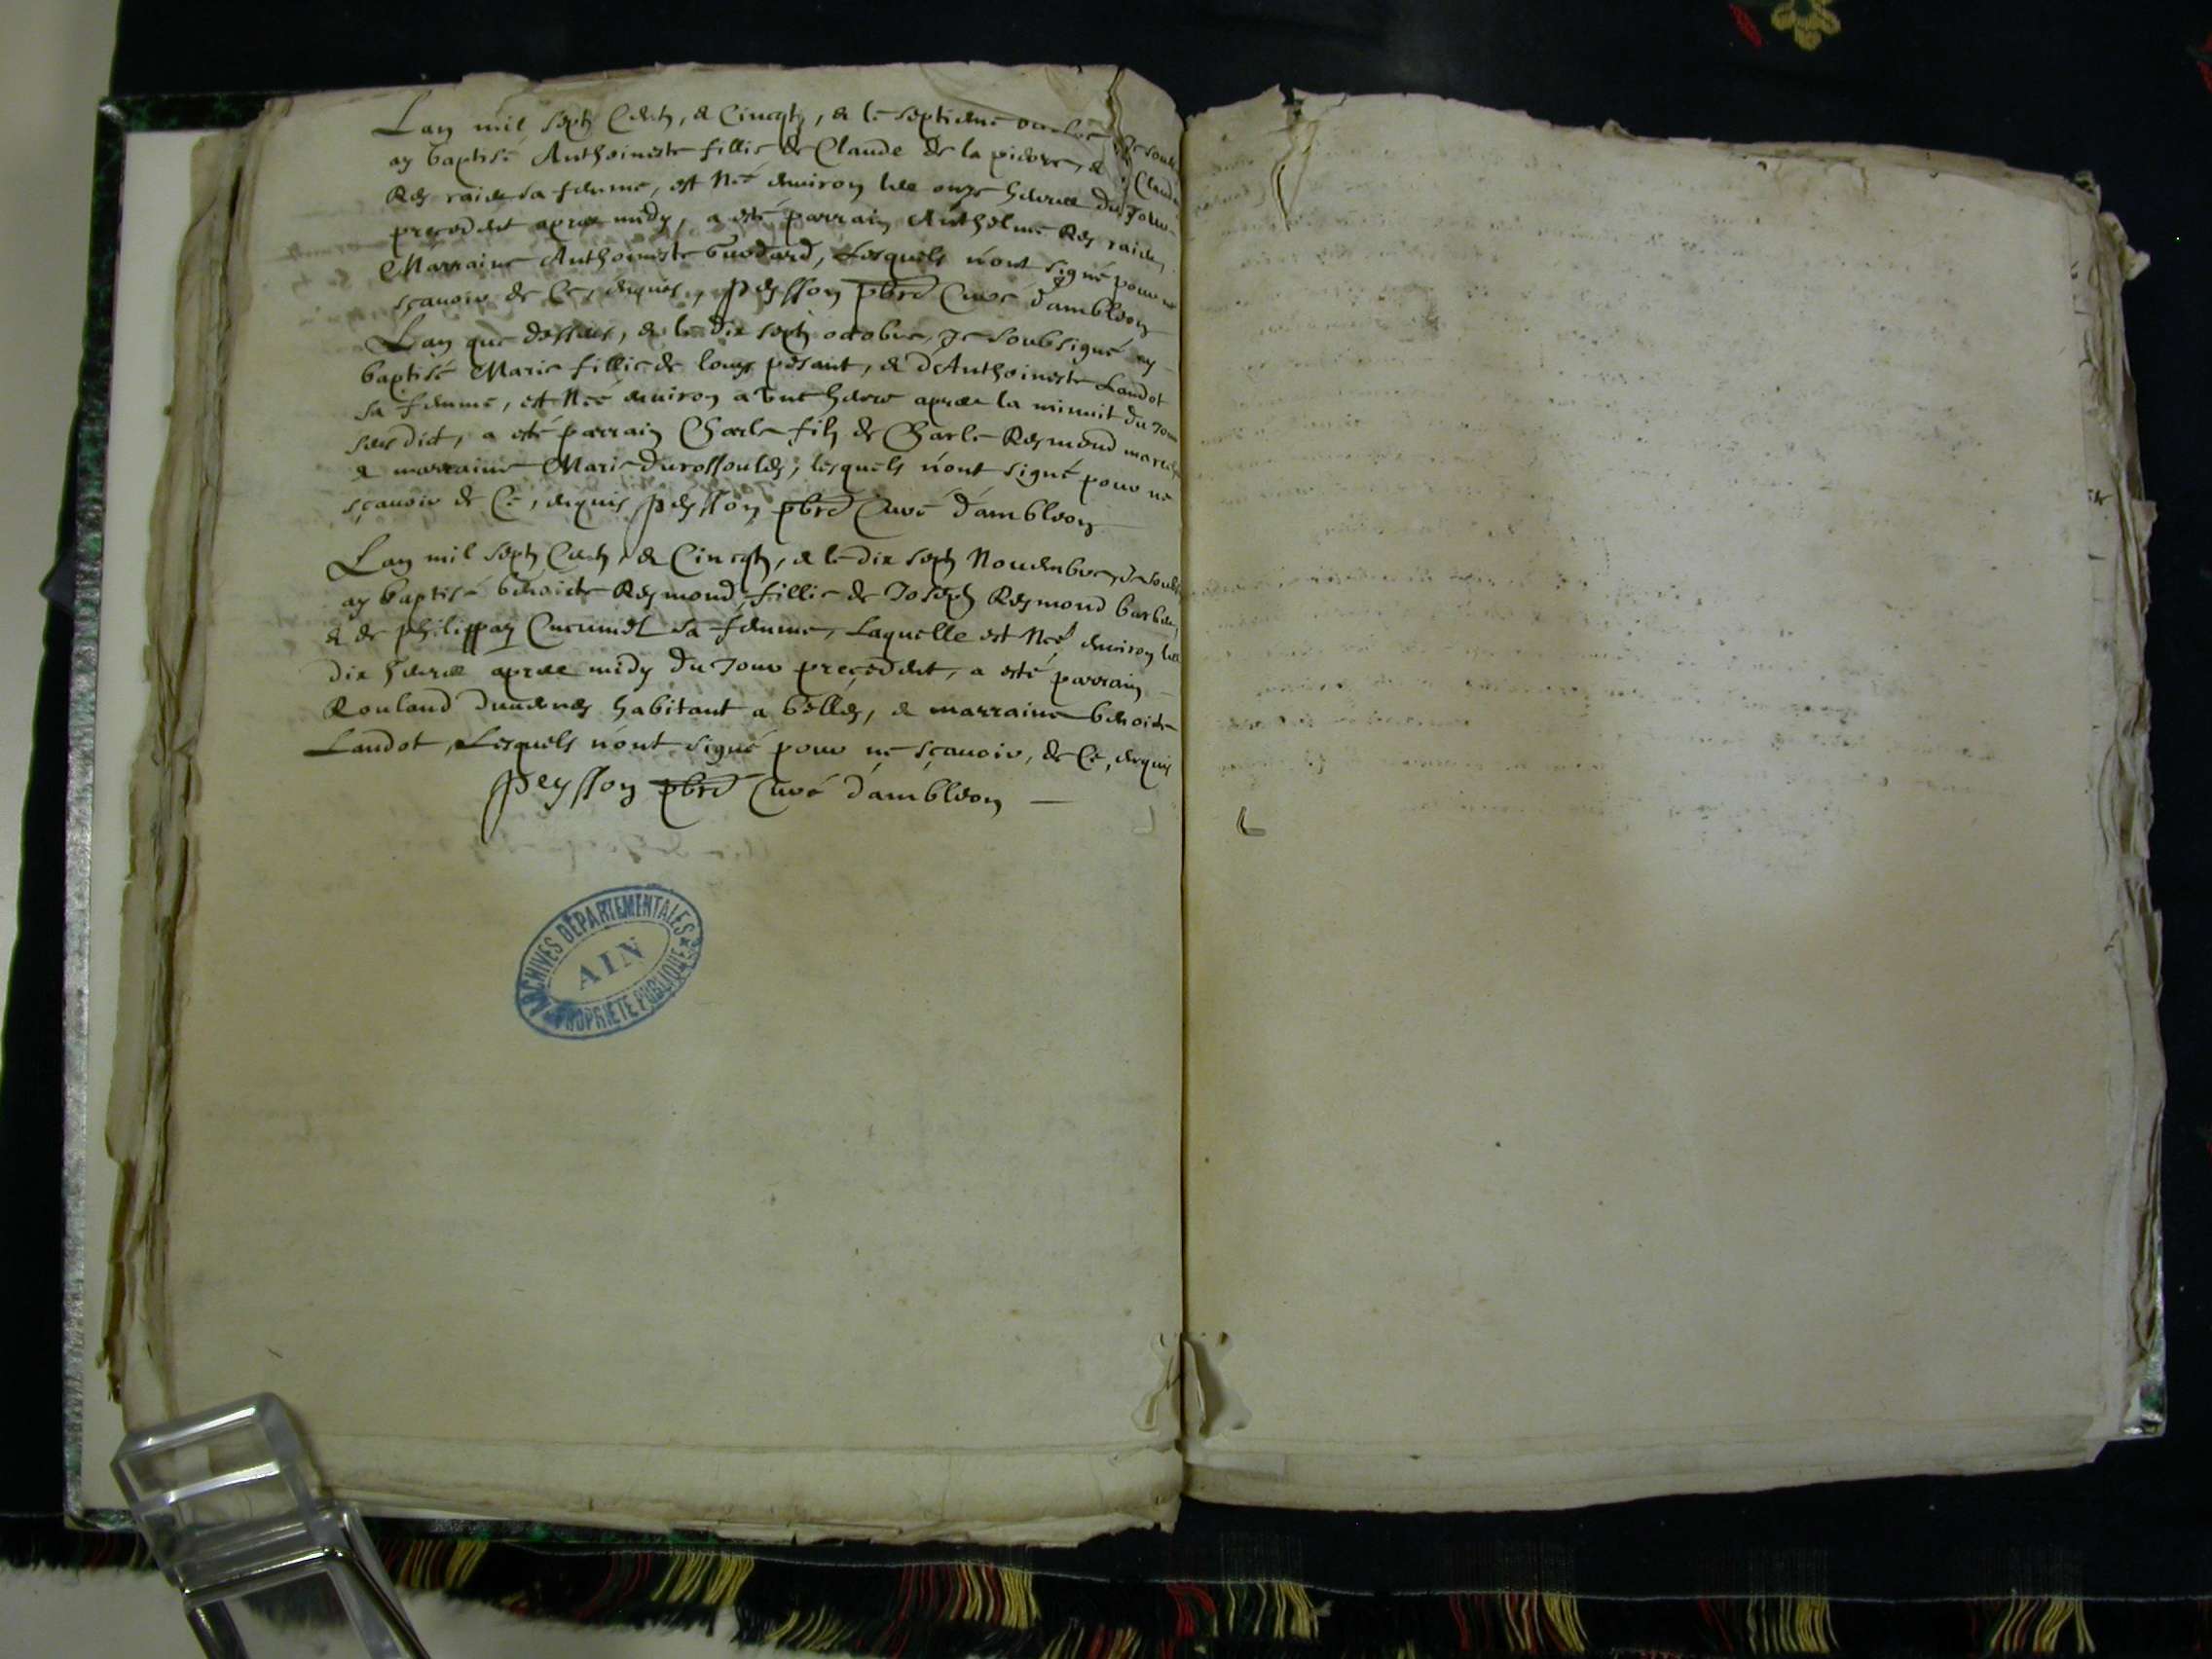 Lan mil sept Cents, & Cincqt, & le septiesme octobre Je soub
ay baptisé Anthoineste fillie de Claude de la pierre, & Claud
Rey sa femme, est Néé environ les onze heures du Jour
precedent apres midy, a esté parrain Anthelme Rey
Marraine Anthoineste Guodard, Lesquels n'ont signé pour ne
sçavoir de Ce, enquis, Peysson pbre Curé d'ambleon
Lan que dessus, & le dix sept octobre, Je soubsigné ay
baptisé Marie fillie de louys pesant, & d'Anthoineste Landot
sa femme, est Néé environ a une heure apres la minuit du Jour
susdict, a esté parrain Charle fils de Charle Reymond
& marraine Marie durossouley, lesquels n'ont signé pour ne
sçavoir de Ce, enquis Peysson pbre Curé d'ambleon
Lan mil sept Cents, & Cincqt, & le dix sept Novembre, Je soub
ay baptisé benoicte Reymond, fillie de Joseph Reymond
& de philippay Cucuniel sa femme, Laquelle est Néé environ les
dix heures apres midy du Jour precedent, a esté parrain
Rouland habitant a belley, & marraine benoicte
Landot, Lesquels n'ont signé pour ne sçavoir, de Ce, enquis
Peysson pbre Curé d'ambleon
ARCHIVES DÉPARTEMENTALES
AIN
PROPRIÉTÉ PUBLIQUE